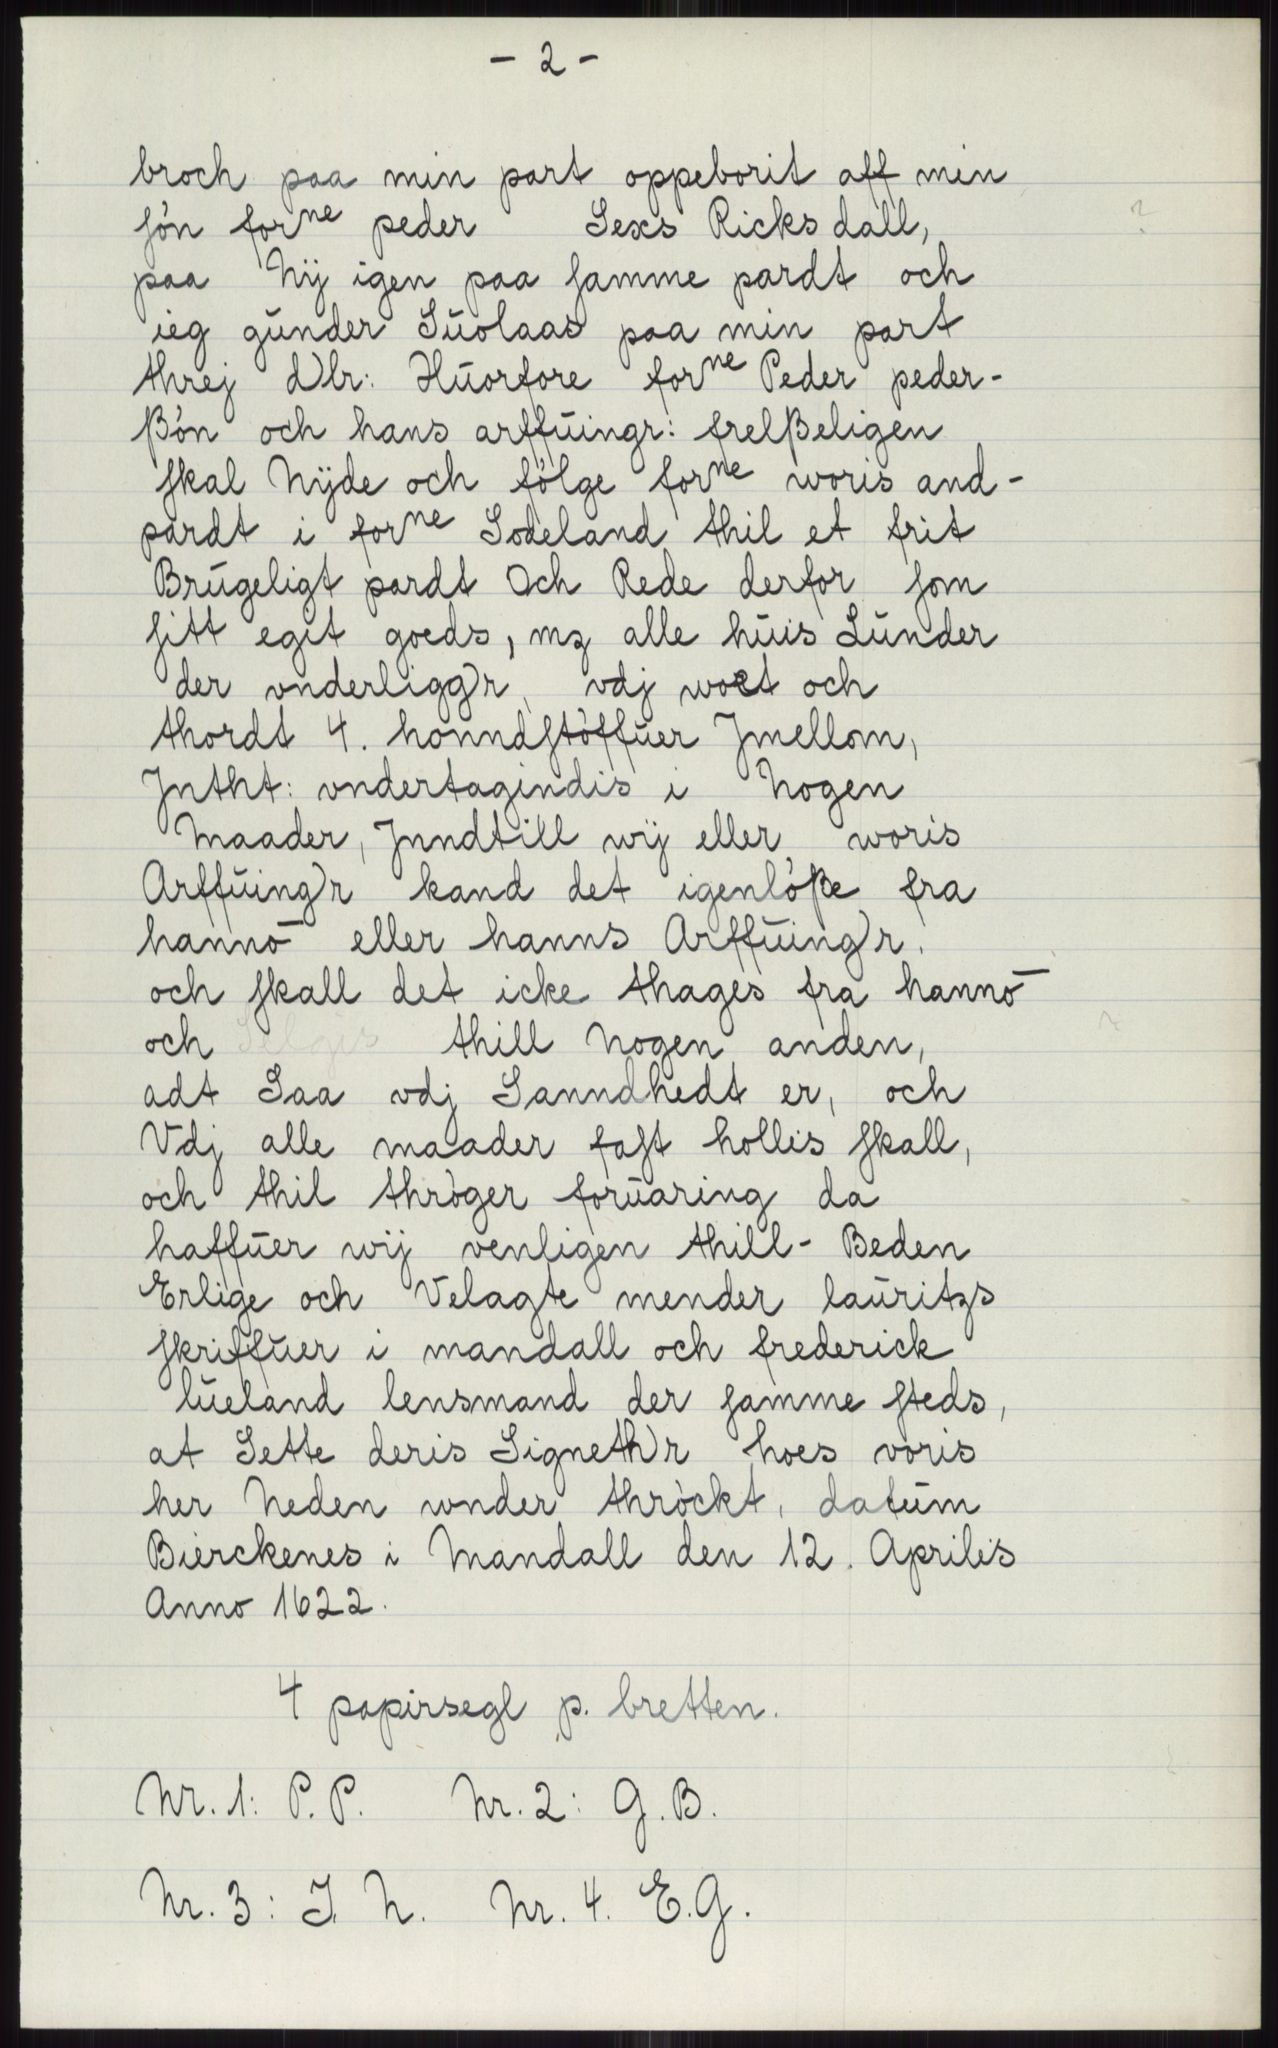 - 2 -
broch paa min part oppeborit aff min
søn forne peder Sexs Ricksdall,
?
paa Nij igen paa samme pardt och
ieg gunder Suolaas paa min part
threj dlr: Huorfore forne Peder peder-
ßøn och hans arffuingr: frelßeligen
skal Nijde och følge forne woris and-
pardt i forne Sodeland thil et frit
Brugeligt pardt Och Rede derfor som
sitt eget goeds, mz alle huis Lunder
der vnderligg)r, vdj woet och
thordt 4. honndstøffuer Jmellom,
Jntht: vndertagindis i Nogen
Maader, Jnndtill wij eller woris
Arffuing)r kand det igenløße fra
hannō eller hanns Arffuing)r.
och skall det icke thages fra hannō
och Selgis thill Nogen anden,
adt Saa vdj Sanndhedt er, och
Vdj alle maader fast hollis skall,
och thil thrøger foruaring da
haffuer wij venligen thill- Beden
Erlige och Velagte mender lauritzs
skriffuer i mandall och frederick
lueland lensmand der samme steds,
at Sette deris Signeth)r hoes voris
her Neden wnder thrøckt, datum
Bierckenes i Mandall den 12. Aprilis
Anno 1622.
4 papirsegl p. bretten.
Nr. 1: P. P. Nr. 2: G. B.
Nr. 3: J. N. Nr. 4. E. G.